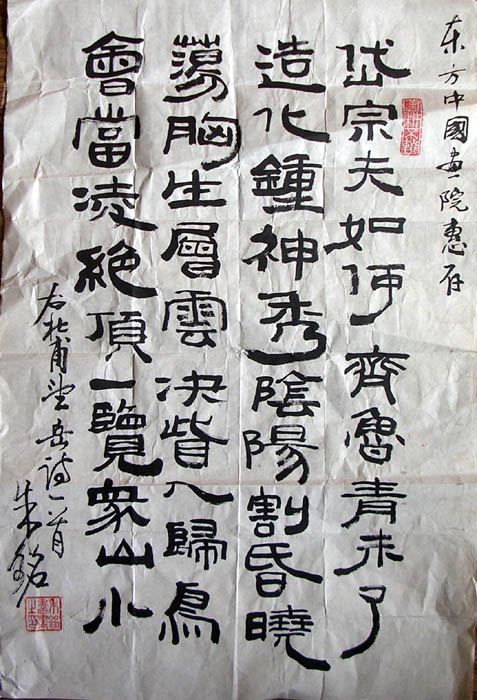 东方中國画院惠存
岱宗夫如何齊魯青未了
造化鍾神秀陰陽割昏曉
蕩胸生層雲決眥入歸鳥
會當凌絕頂一覽衆山小
右杜甫望岳詩一首
朱銘